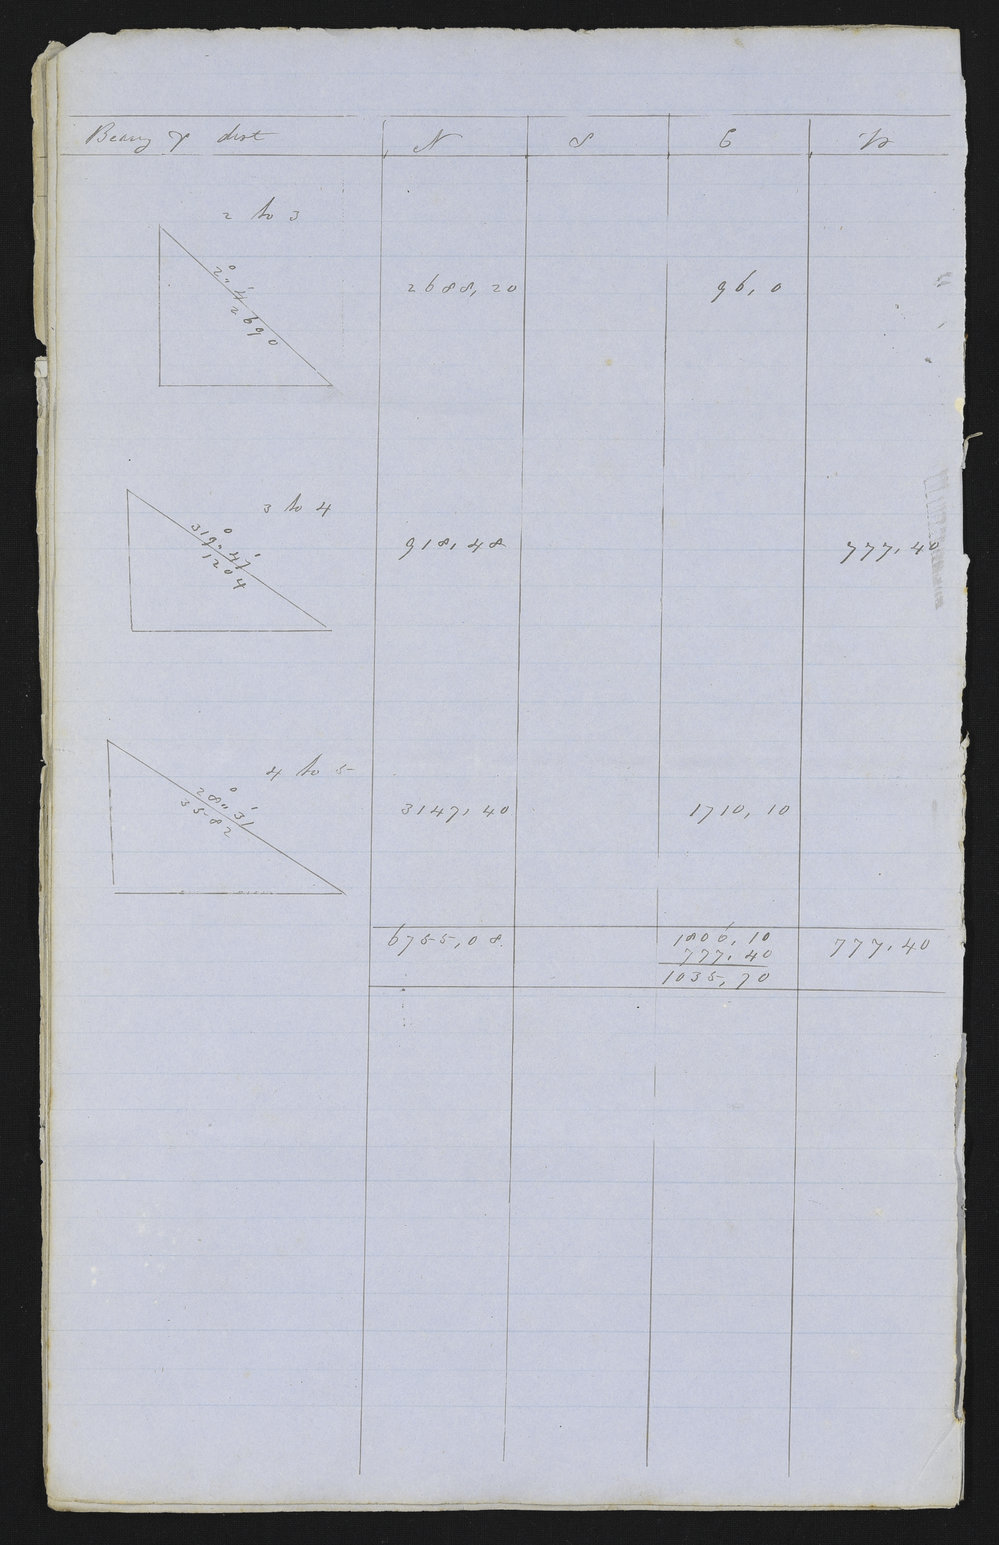 Bearing & dist N S E W
2 to 3
2°" 4' 2688,20 96,0
2690
3 to 4
319°" 47' 918,48 777,40
1204
4 to 5
28°" 31' 3147,40 1710,10
3582
6755,08 1806,10 777,40
777,40
1035,70